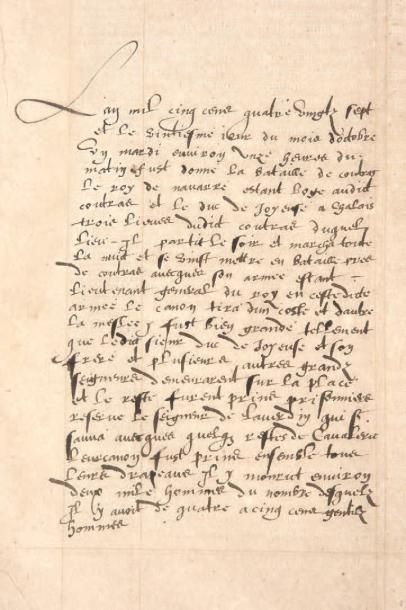 Lan mil cinq cens quatre vingtz sept
et le vintiesme iour du mois doctobre
Un mardi environ unze heures du
matin fust donne la bataille de coutras
le roy de navarre estant loge audit
coutras et le duc de Joyeuse a Chalais
trois lieues dudict coutras duquel
lieu Il partit le soir et marcha toute
la nuit et se vinst mettre en bataille pres
de coutras avecques son armee estant
lieutenant general du roy en ceste dicte
armee le canon tira dun coste et dautre
la meslee y fust bien grande tellement
que ledit sieur duc de Joyeuse et son
frere et plusieurs autres grandz
seigneurs demeurarent sur la place
et le reste furent prins prisonniers
reserve le seigneur de Laverdin qui se
sauva avecques quelqz restes de Cavalerie
leur canon fust prins ensemble tous
leurs drapeaus Il y mourut environ
deux mile hommes du nombre desquelz
Il y avoit de quatre a cinq cens gentilz
hommes